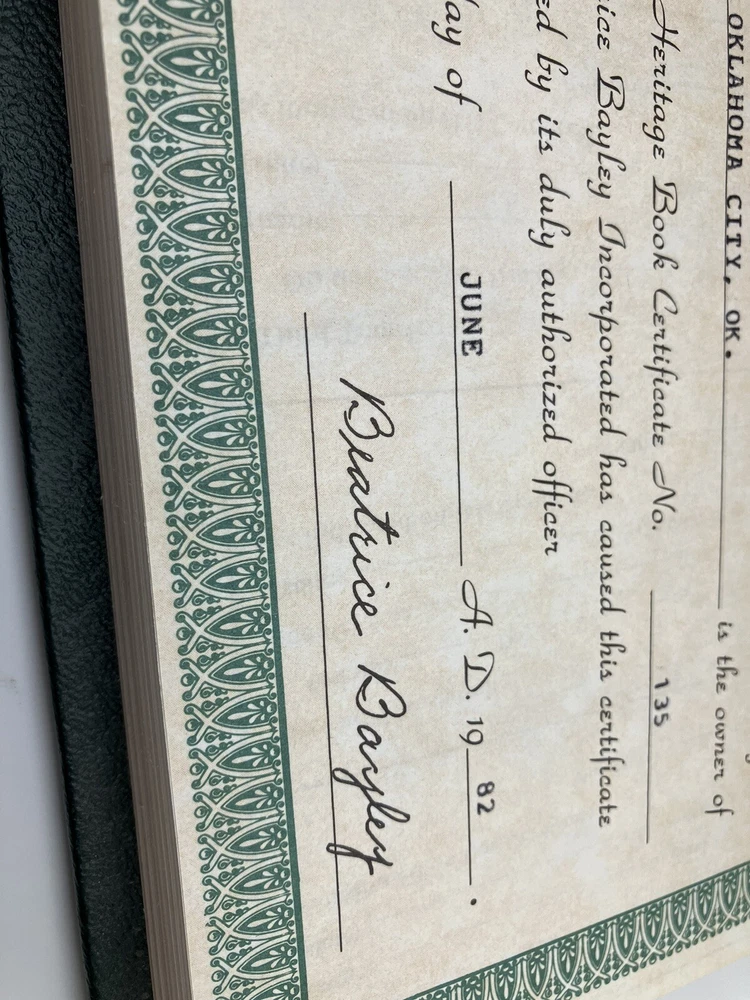 OKLAHOMA CITY, OK. is the owner of
Heritage Book Certificate No. 135
Bayley Incorporated has caused this certificate
by its duly authorized officer
of JUNE A. D. 1982.
Beatrice Bayley